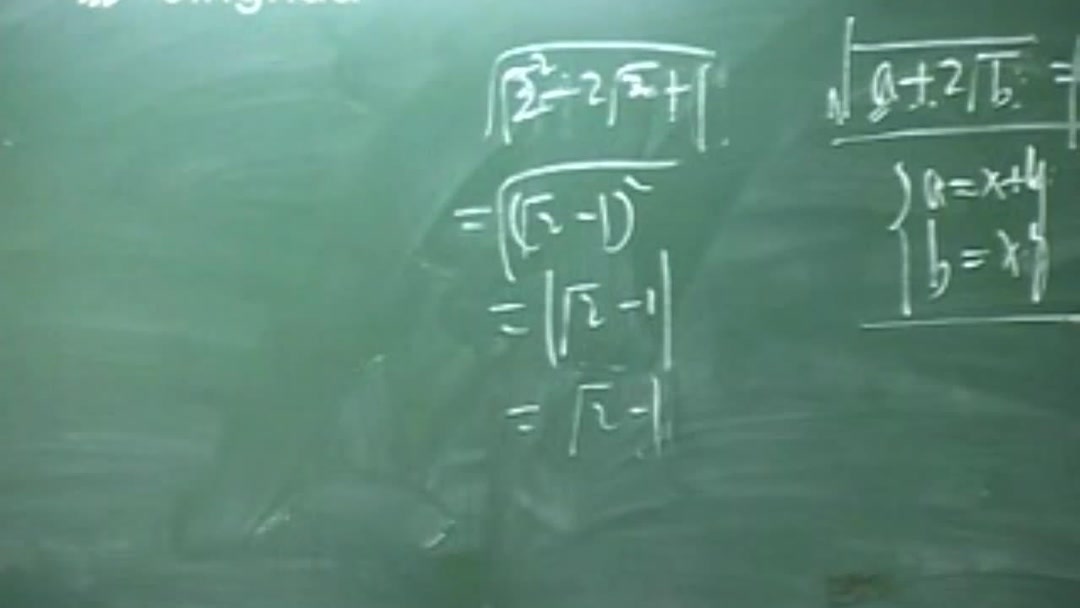 √(√2² - 2√2 + 1)
= √((√2 - 1)²
= |√2 - 1|
= √2 - 1
√(a + 2√b) =
{ a = x + y
b = x · y